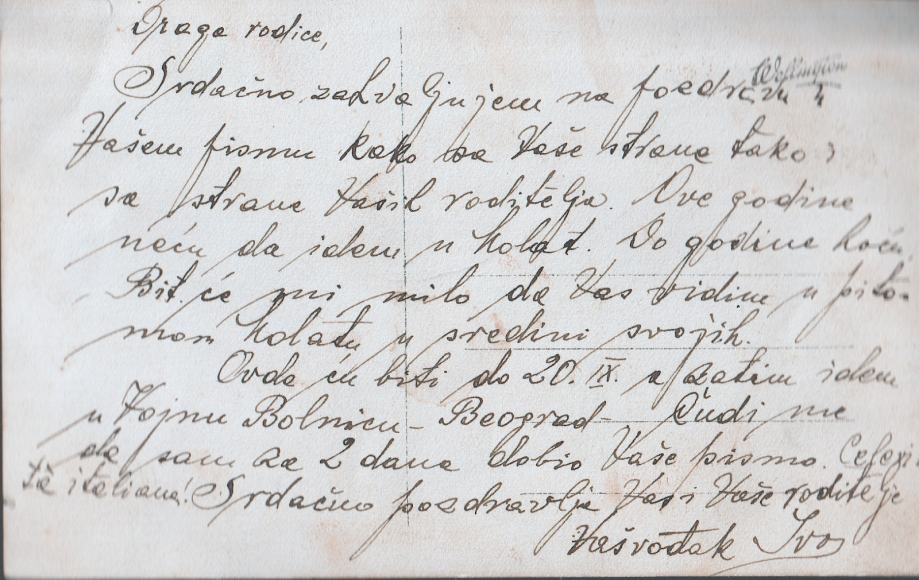 Draga rođice,
Wellington
Srdačno zahvaljujem na pozdravu u
Vašem pismu kako sa Vaše strane tako i
sa strane Vaših roditelja. Ove godine
neću da idem u Kolat. Do godine hoću.
Bit će mi milo da Vas vidim u pito-
mom Kolatu u sredini svojih.
Ovde ću biti do 20. IX. a zatim idem
u Vojnu Bolnicu - Beograd - Čudi me
da sam za 2 dana dobio Vaše pismo.
ta italiana! Srdačno pozdravlja Vas i Vaše roditelje
Vaš rođak Ivo